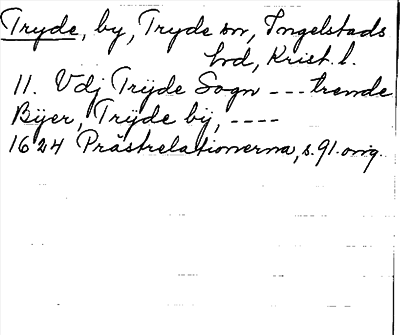 Tryde, by, Tryde sn, Ingelstads
hd, Krist. l.
11. Vdj Trÿde Sogn --- trende
Bÿer, Trÿde bÿ, ----
1624 Prästrelationerna, s. 91. orig.